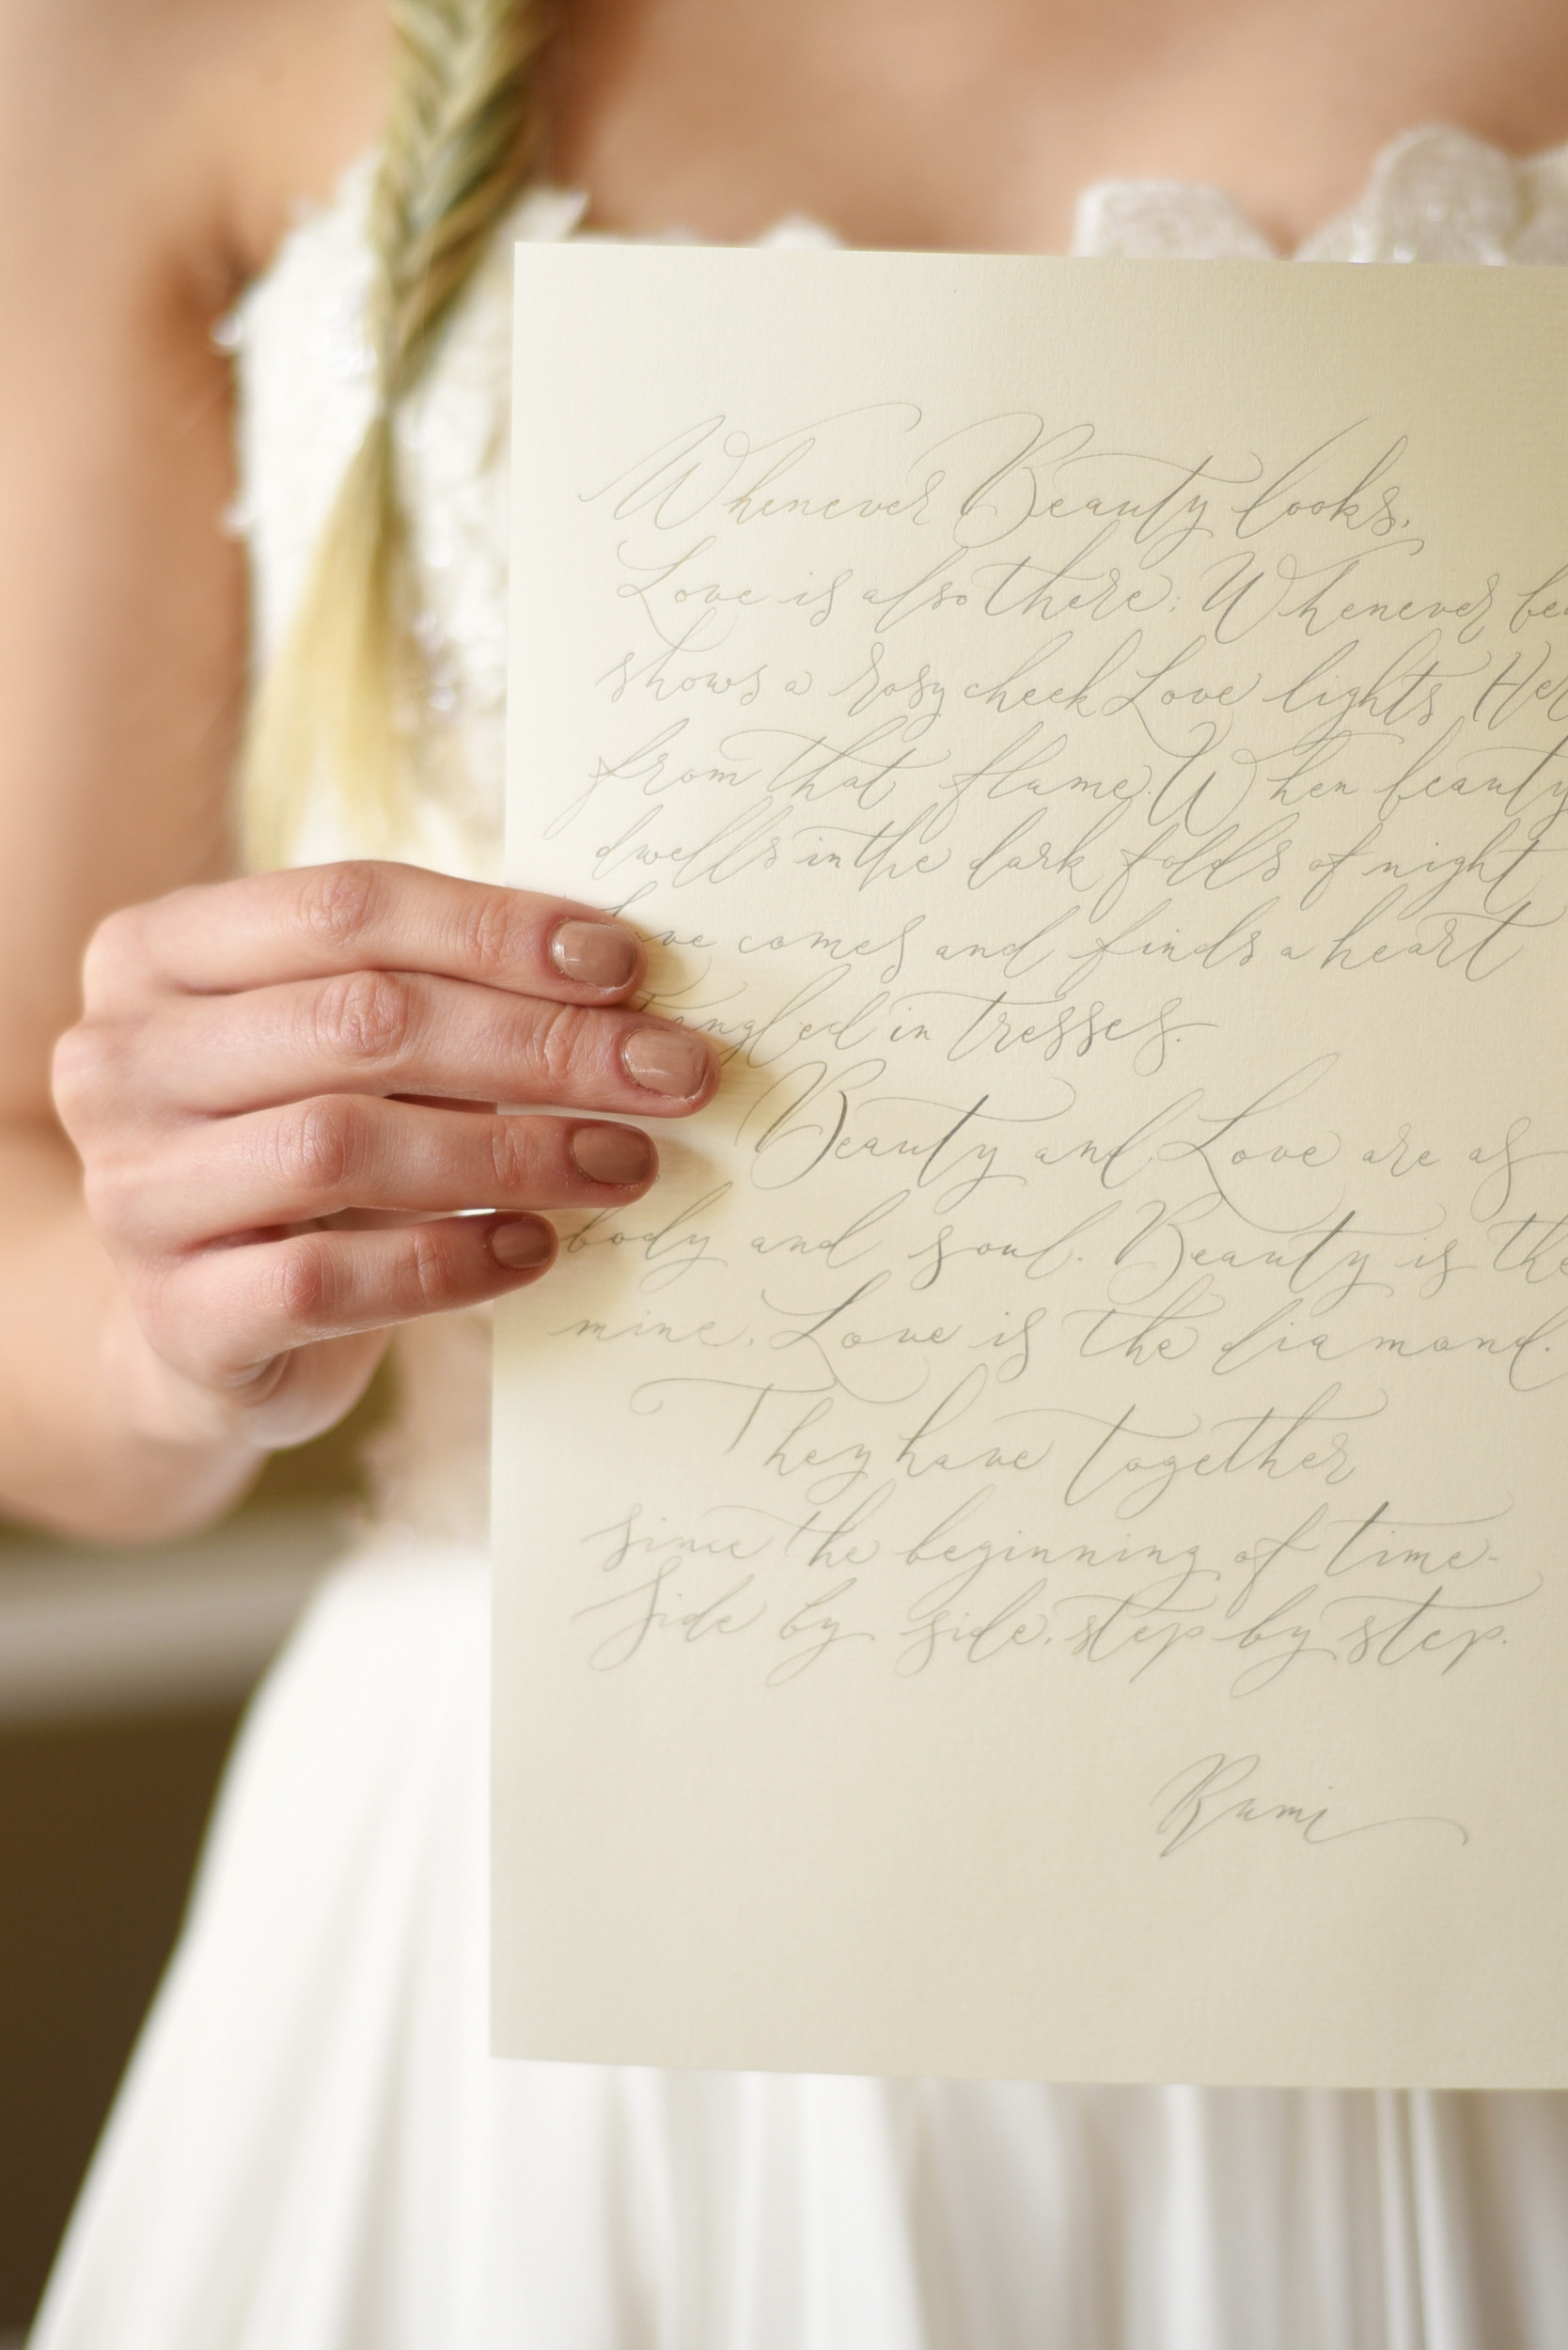 Whenever Beauty looks,
Love is also there; Whenever be
shows a rosy cheek Love lights Her
from that flame. When beauty
dwells in the dark folds of night
Love comes and finds a heart
tangled in tresses.
Beauty and Love are as
body and soul. Beauty is the
mine, Love is the diamond.
They have together
since the beginning of time-
Side by side, step by step.
Rumi